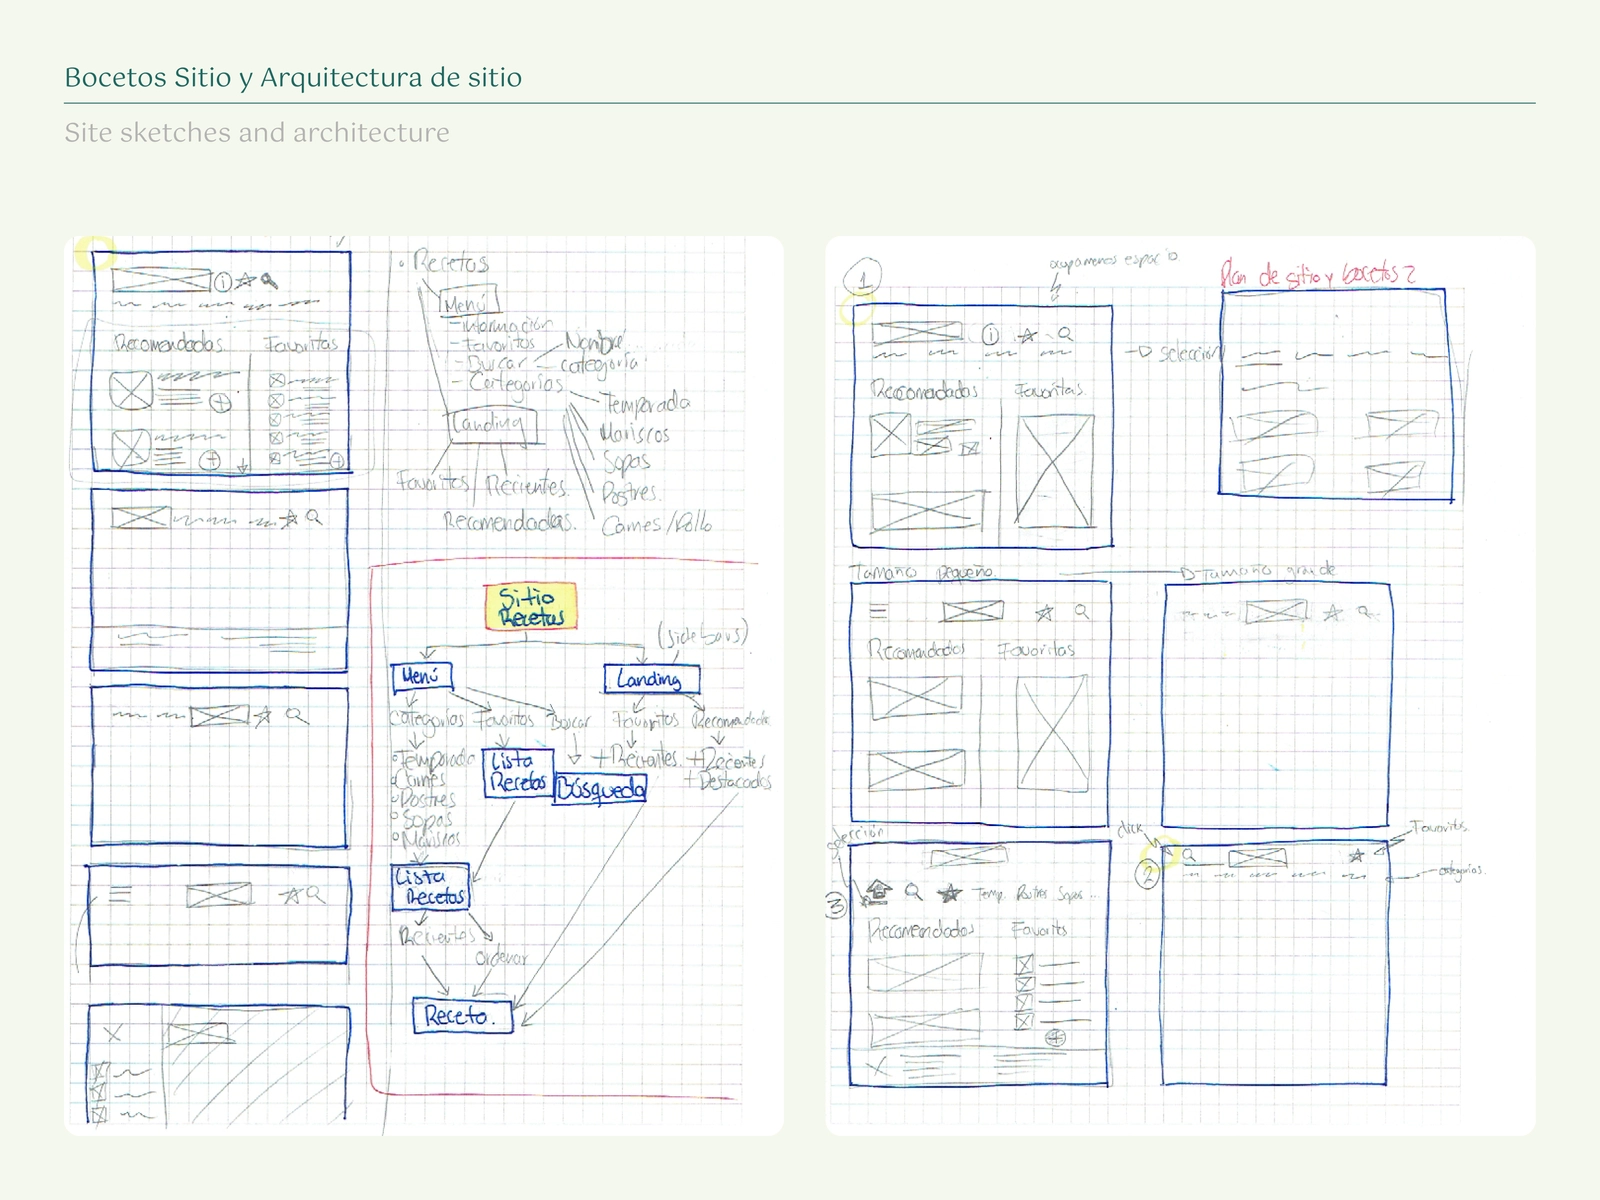 Bocetos Sitio y Arquitectura de sitio
Site sketches and architecture
Recomendadas
Favoritas
Recetas
Menú
- Información
- Favoritos
- Buscar
- Categorías
Nombre
categoría
Temporada
Mariscos
Sopas
Postres.
Carnes/Pollo
Landing
Favoritos
Recientes.
Recomendadas.
Sitio
Recetas
(sidebars)
Menú
Landing
Categorías
Favoritos
Buscar
Favoritos
Temporada
Carnes
Postres
Sopas
Mariscos
Lista
Recetas
Búsqueda
+ Recientes.
+ Recientes
+ Destacados
Lista
Recetas
Recientes
Ordenar
Receta.
1
ocupa menos espacio
Plan de sitio y bocetos 2
Recomendados
Favoritas.
selección
Tamaño pequeño.
Tamaño grande
Recomendados
Favoritas
click
Favoritos.
2
categorías.
selección
3
Temp. Postres Sopas ...
Recomendados
Favorits